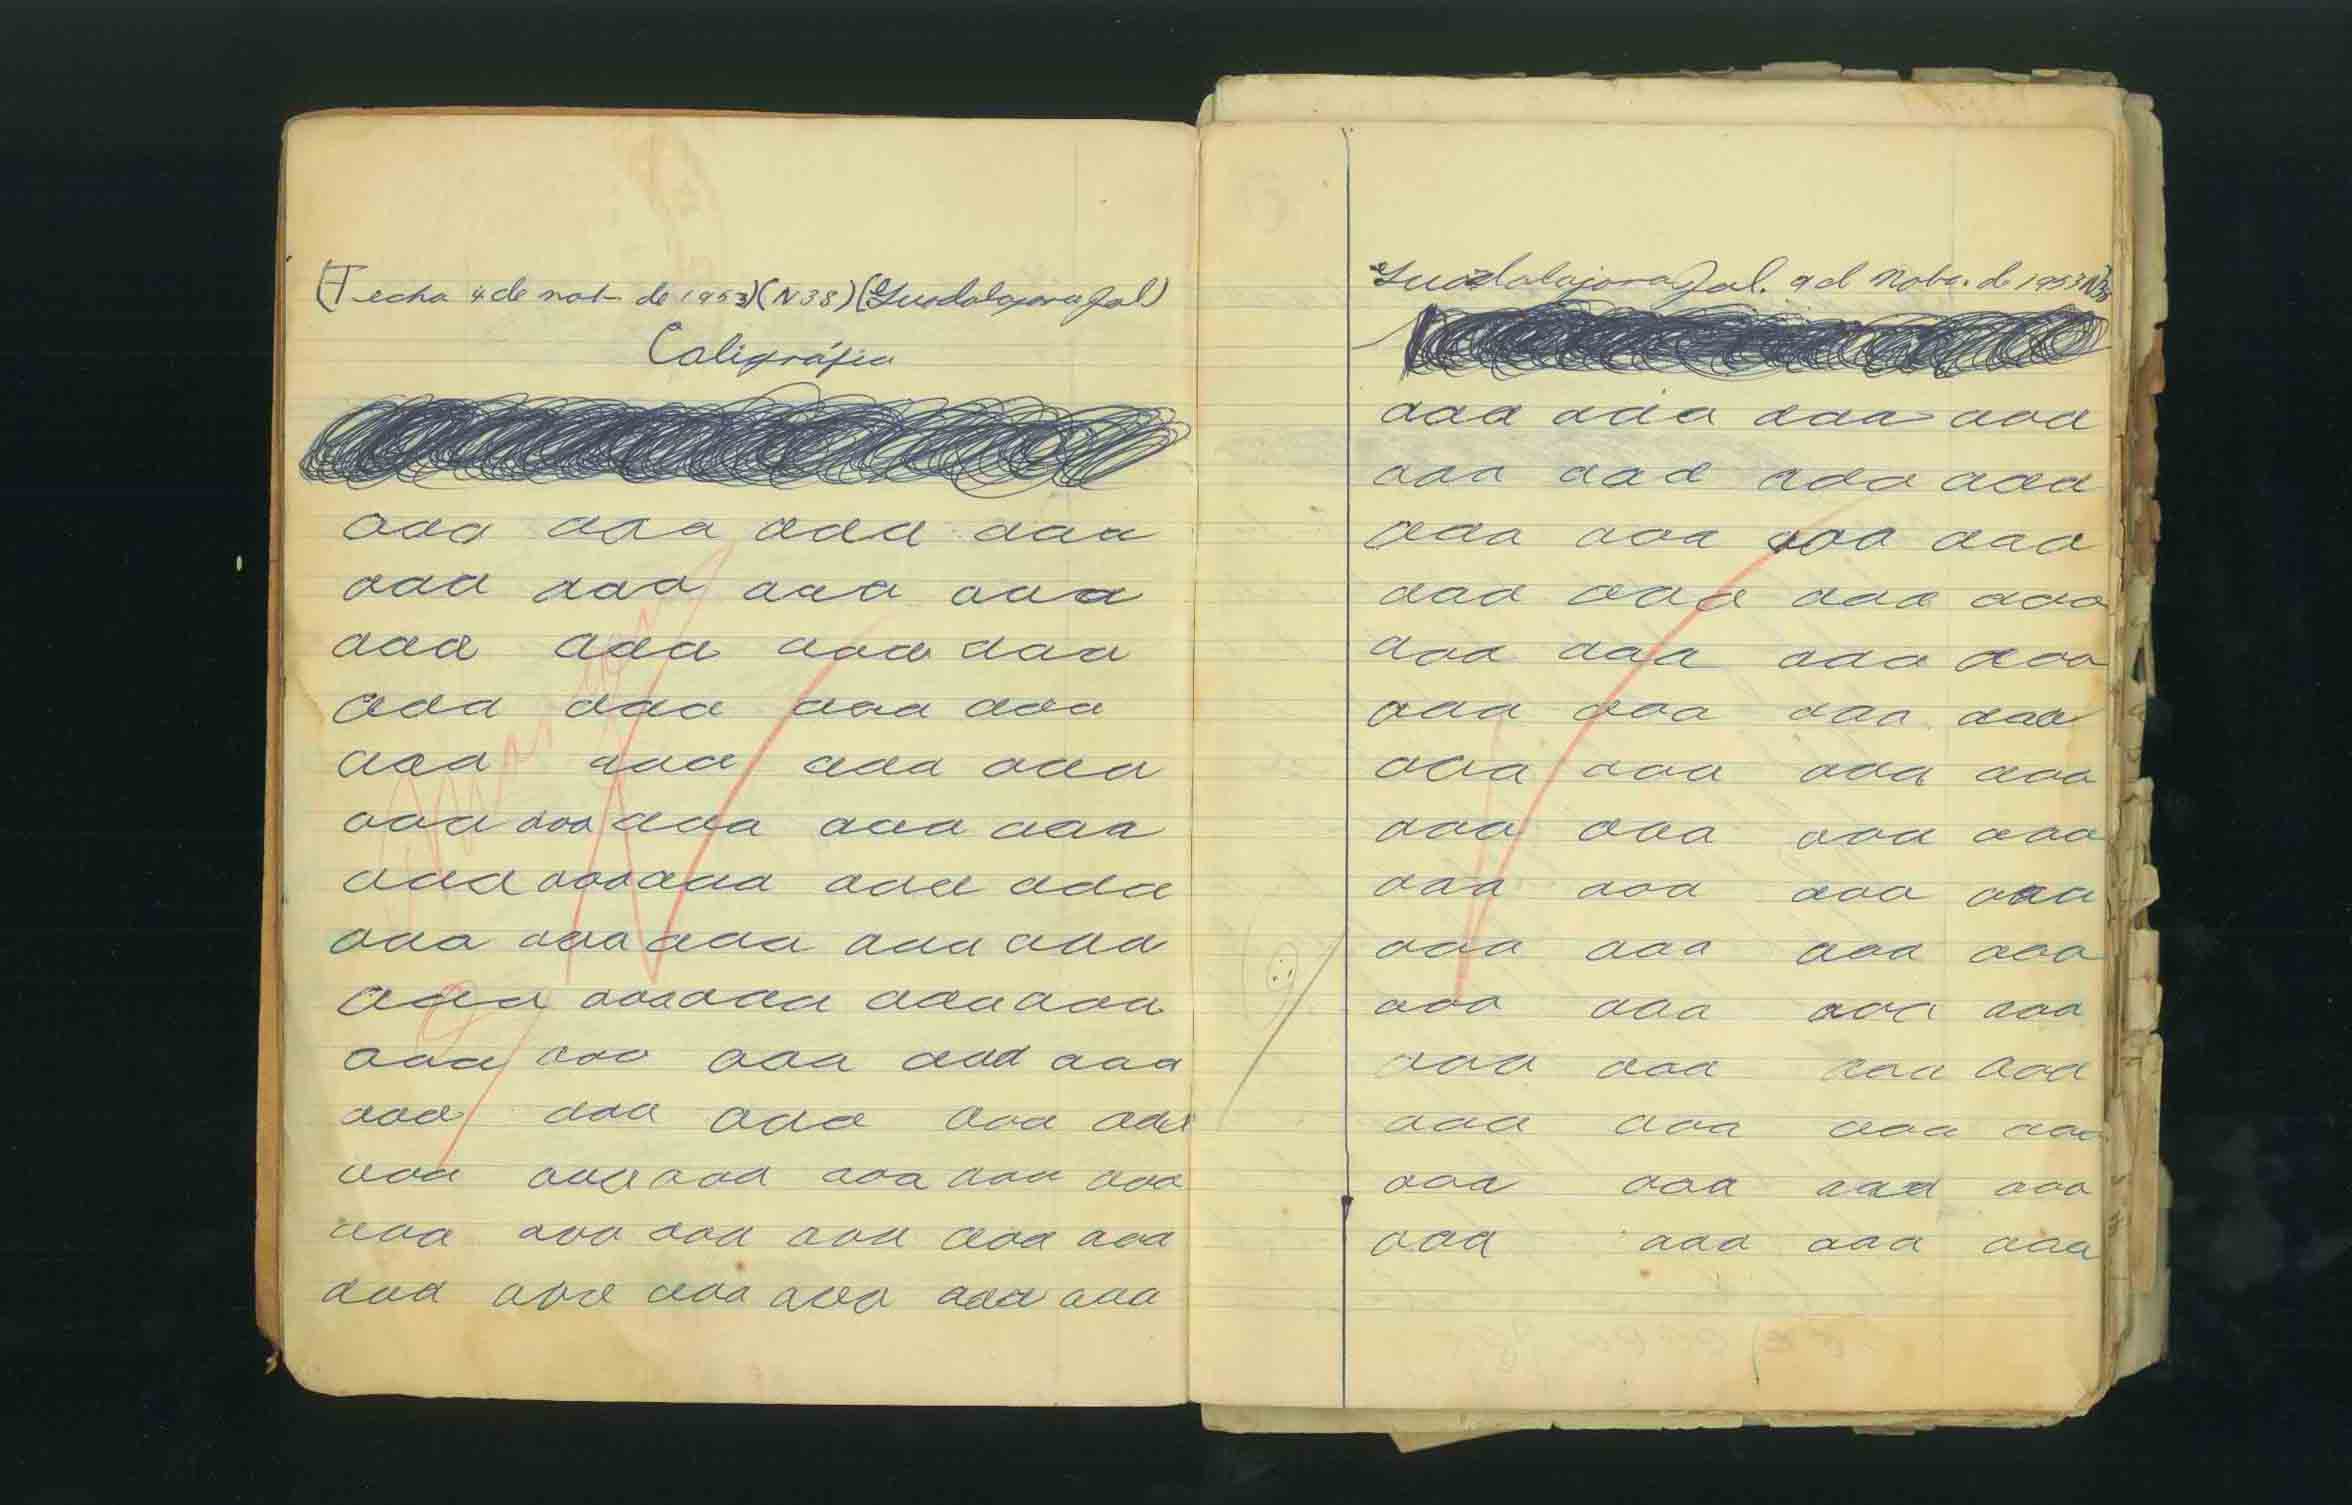 (Fecha 4 de nob- de 1953)(N38)(Guadalajara Jal)
Caligráfia
aaa aaa aaa aaa
aaa aaa aaa aaa
aaa aaa aaa aaa
aaa aaa aaa aaa
aaa aaa aaa aaa
aaa aaa aaa aaa aaa
aaa aaa aaa aaa aaa
aaa aaa aaa aaa aaa
aaa aaa aaa aaa aaa
aaa aaa aaa aaa aaa
aaa aaa aaa aaa aaa
aaa aaa aaa aaa aaa aaa
aaa aaa aaa aaa aaa aaa
aaa aaa aaa aaa aaa aaa
Guadalajara Jal. 9 d Nobe. de 1953 N38
aaa aaa aaa aaa
aaa aaa aaa aaa
aaa aaa aaa aaa
aaa aaa aaa aaa
aaa aaa aaa aaa
aaa aaa aaa aaa
aaa aaa aaa aaa
aaa aaa aaa aaa
aaa aaa aaa aaa
aaa aaa aaa aaa
aaa aaa aaa aaa
aaa aaa aaa aaa
aaa aaa aaa aaa
aaa aaa aaa aaa
aaa aaa aaa aaa